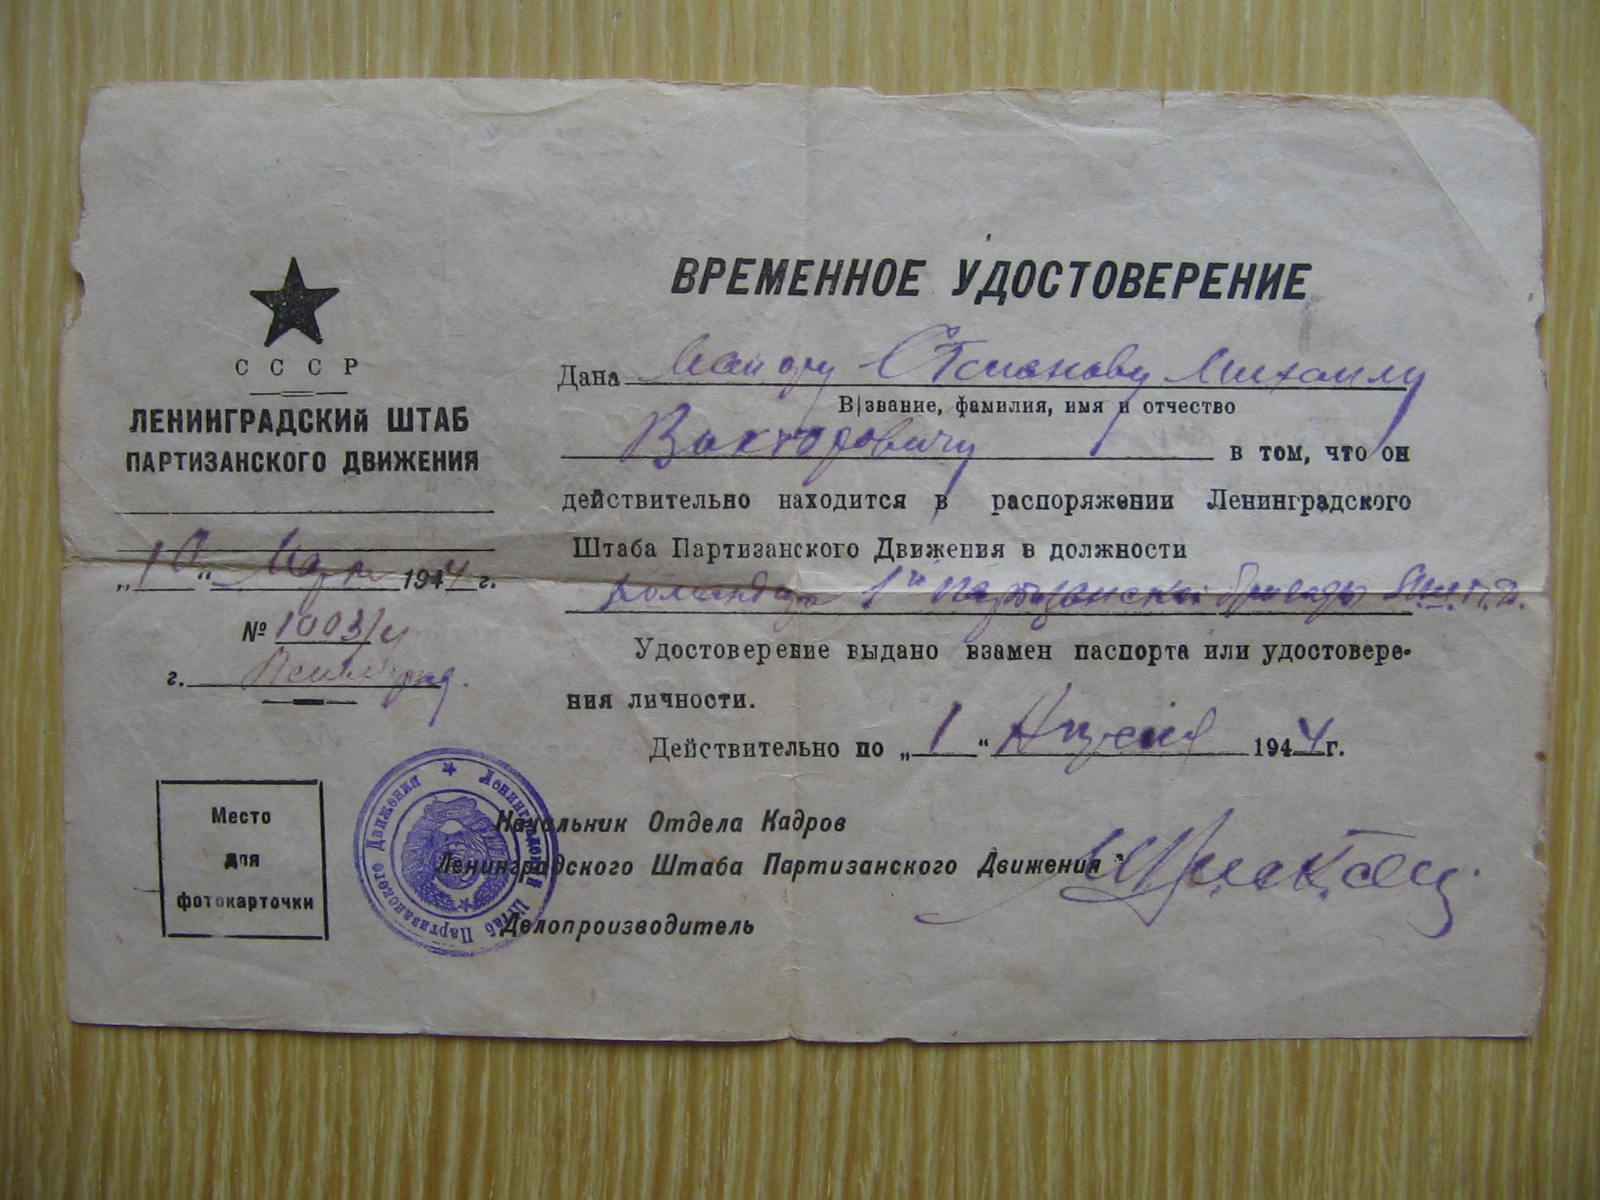 СССР
ЛЕНИНГРАДСКИЙ ШТАБ
ПАРТИЗАНСКОГО ДВИЖЕНИЯ
„10“ Марта 1944 г.
№ 1003/ч
г. Ленинград.
Место
для
фотокарточки
ВРЕМЕННОЕ УДОСТОВЕРЕНИЕ
Дана Майору Степанову Михаилу
В/звание, фамилия, имя и отчество
Викторовичу в том, что он
действительно находится в распоряжении Ленинградского
Штаба Партизанского Движения в должности
командира 1й партизанской бригады Л.Ш.П.Д.
Удостоверение выдано взамен паспорта или удостовере-
ния личности.
Действительно по „1“ Апреля 1944 г.
Начальник Отдела Кадров
Ленинградского Штаба Партизанского Движения
Делопроизводитель
Ленинградский Штаб Партизанского Движения